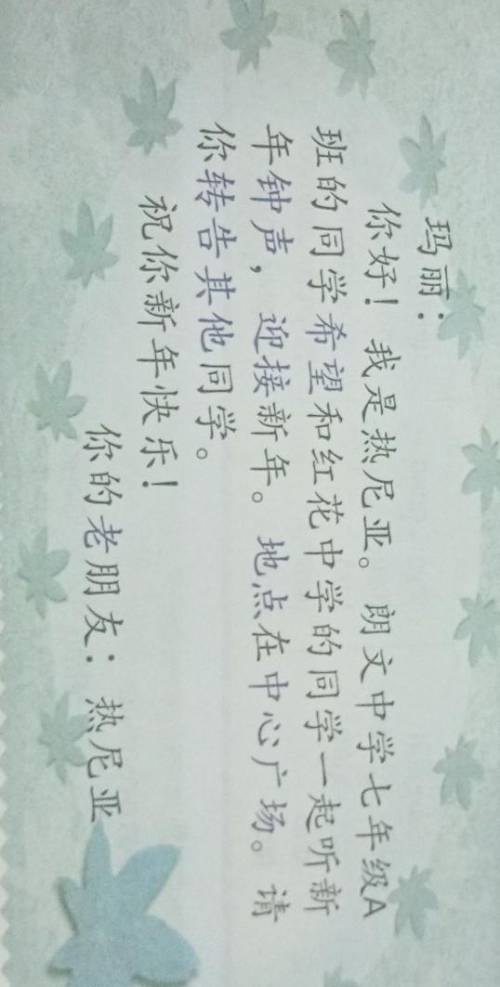 玛丽：
你好！我是热尼亚。朗文中学七年级A
班的同学希望和红花中学的同学一起听新
年钟声，迎接新年。地点在中心广场。请
你转告其他同学。
祝你新年快乐！
你的老朋友：热尼亚